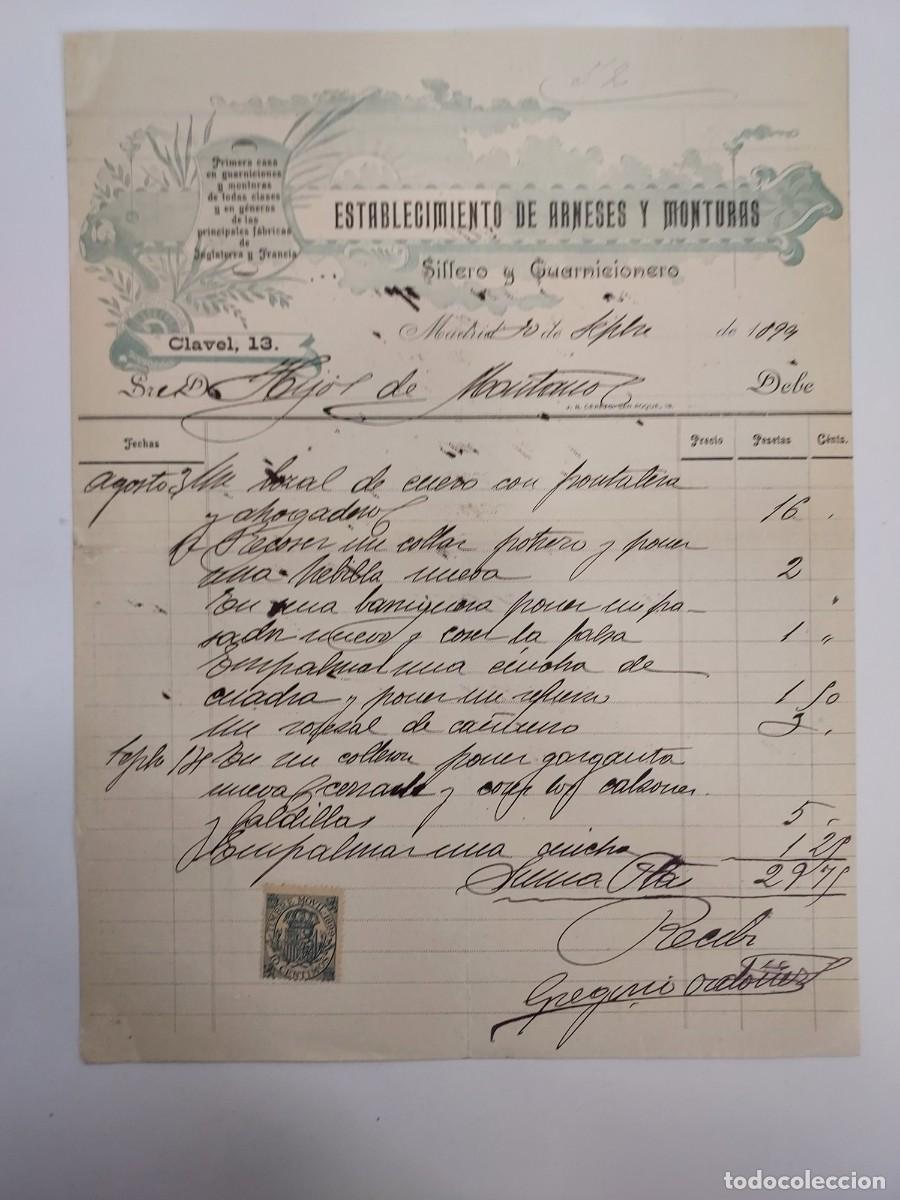 Primera casa
en guarniciones
y monturas
de todas clases
y en géneros
de las
principales fábricas
de
Inglaterra y Francia
ESTABLECIMIENTO DE ARNESES Y MONTURAS
Sillero y Guarnicionero
Clavel, 13.
Madrid 20 de Sepbre de 1899
Sr. D. Hijos de Montano Debe
Fechas Precio Pesetas Cénts.
Agosto 3 Un bozal de cuero con frontalera
y ahogadero 16 "
Recoser un collar potrero y poner
una hebilla nueva 2 "
En una barriguera poner un pa-
sador nuevo y coser la falsa 1 "
Empalmar una cincha de
cuadra y poner un refuerzo 1 50
un ronzal de cáñamo 3 "
Sepbre En un colleron poner garganta
nueva cerrarle y coser los calzones
y faldillas 5 -
Empalmar una cincha 1 25
Suma Ptas 29 75
Recibi
Gregorio Ordoñez
MOVIL
10 CENTIMOS
todocoleccion.net